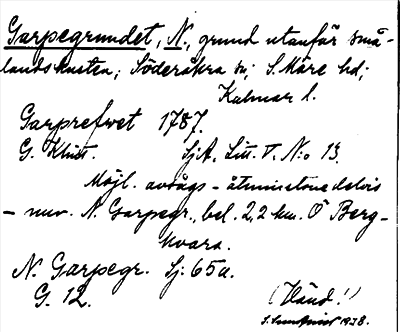 Garpegrundet, N., grund utanför små-
landskusten; Söderåkra sn; S. Möre hd;
Kalmar l.
Garprefwet 1787.
G. Klint. SjA, Litt. V. N:o 13.
Möjl. avsågs - åtminstone delvis
- nuv. N. Garpegr., bel. 2,2 km. Ö Berg-
kvara.
N. Garpegr. Sj: 65a.
G. 12. (Vänd!)
1928.